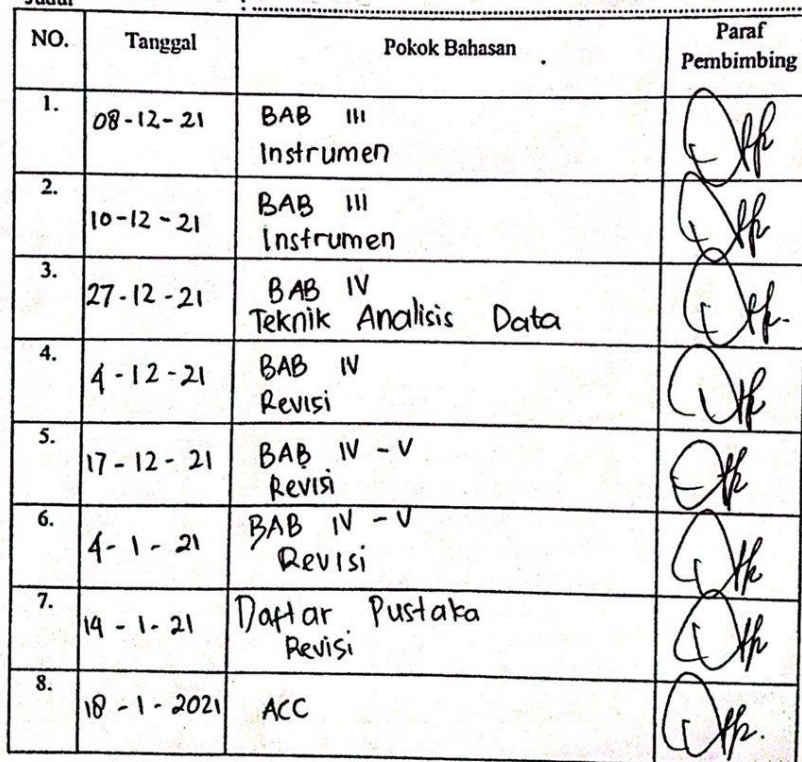 Judul :
NO. Tanggal Pokok Bahasan Paraf Pembimbing
1. 08-12-21 BAB III
Instrumen
2. 10-12-21 BAB III
Instrumen
3. 27-12-21 BAB IV
Teknik Analisis Data
4. 4-12-21 BAB IV
Revisi
5. 17-12-21 BAB IV - V
Revisi
6. 4-1-21 BAB IV - V
Revisi
7. 14-1-21 Daftar Pustaka
Revisi
8. 18-1-2021 ACC